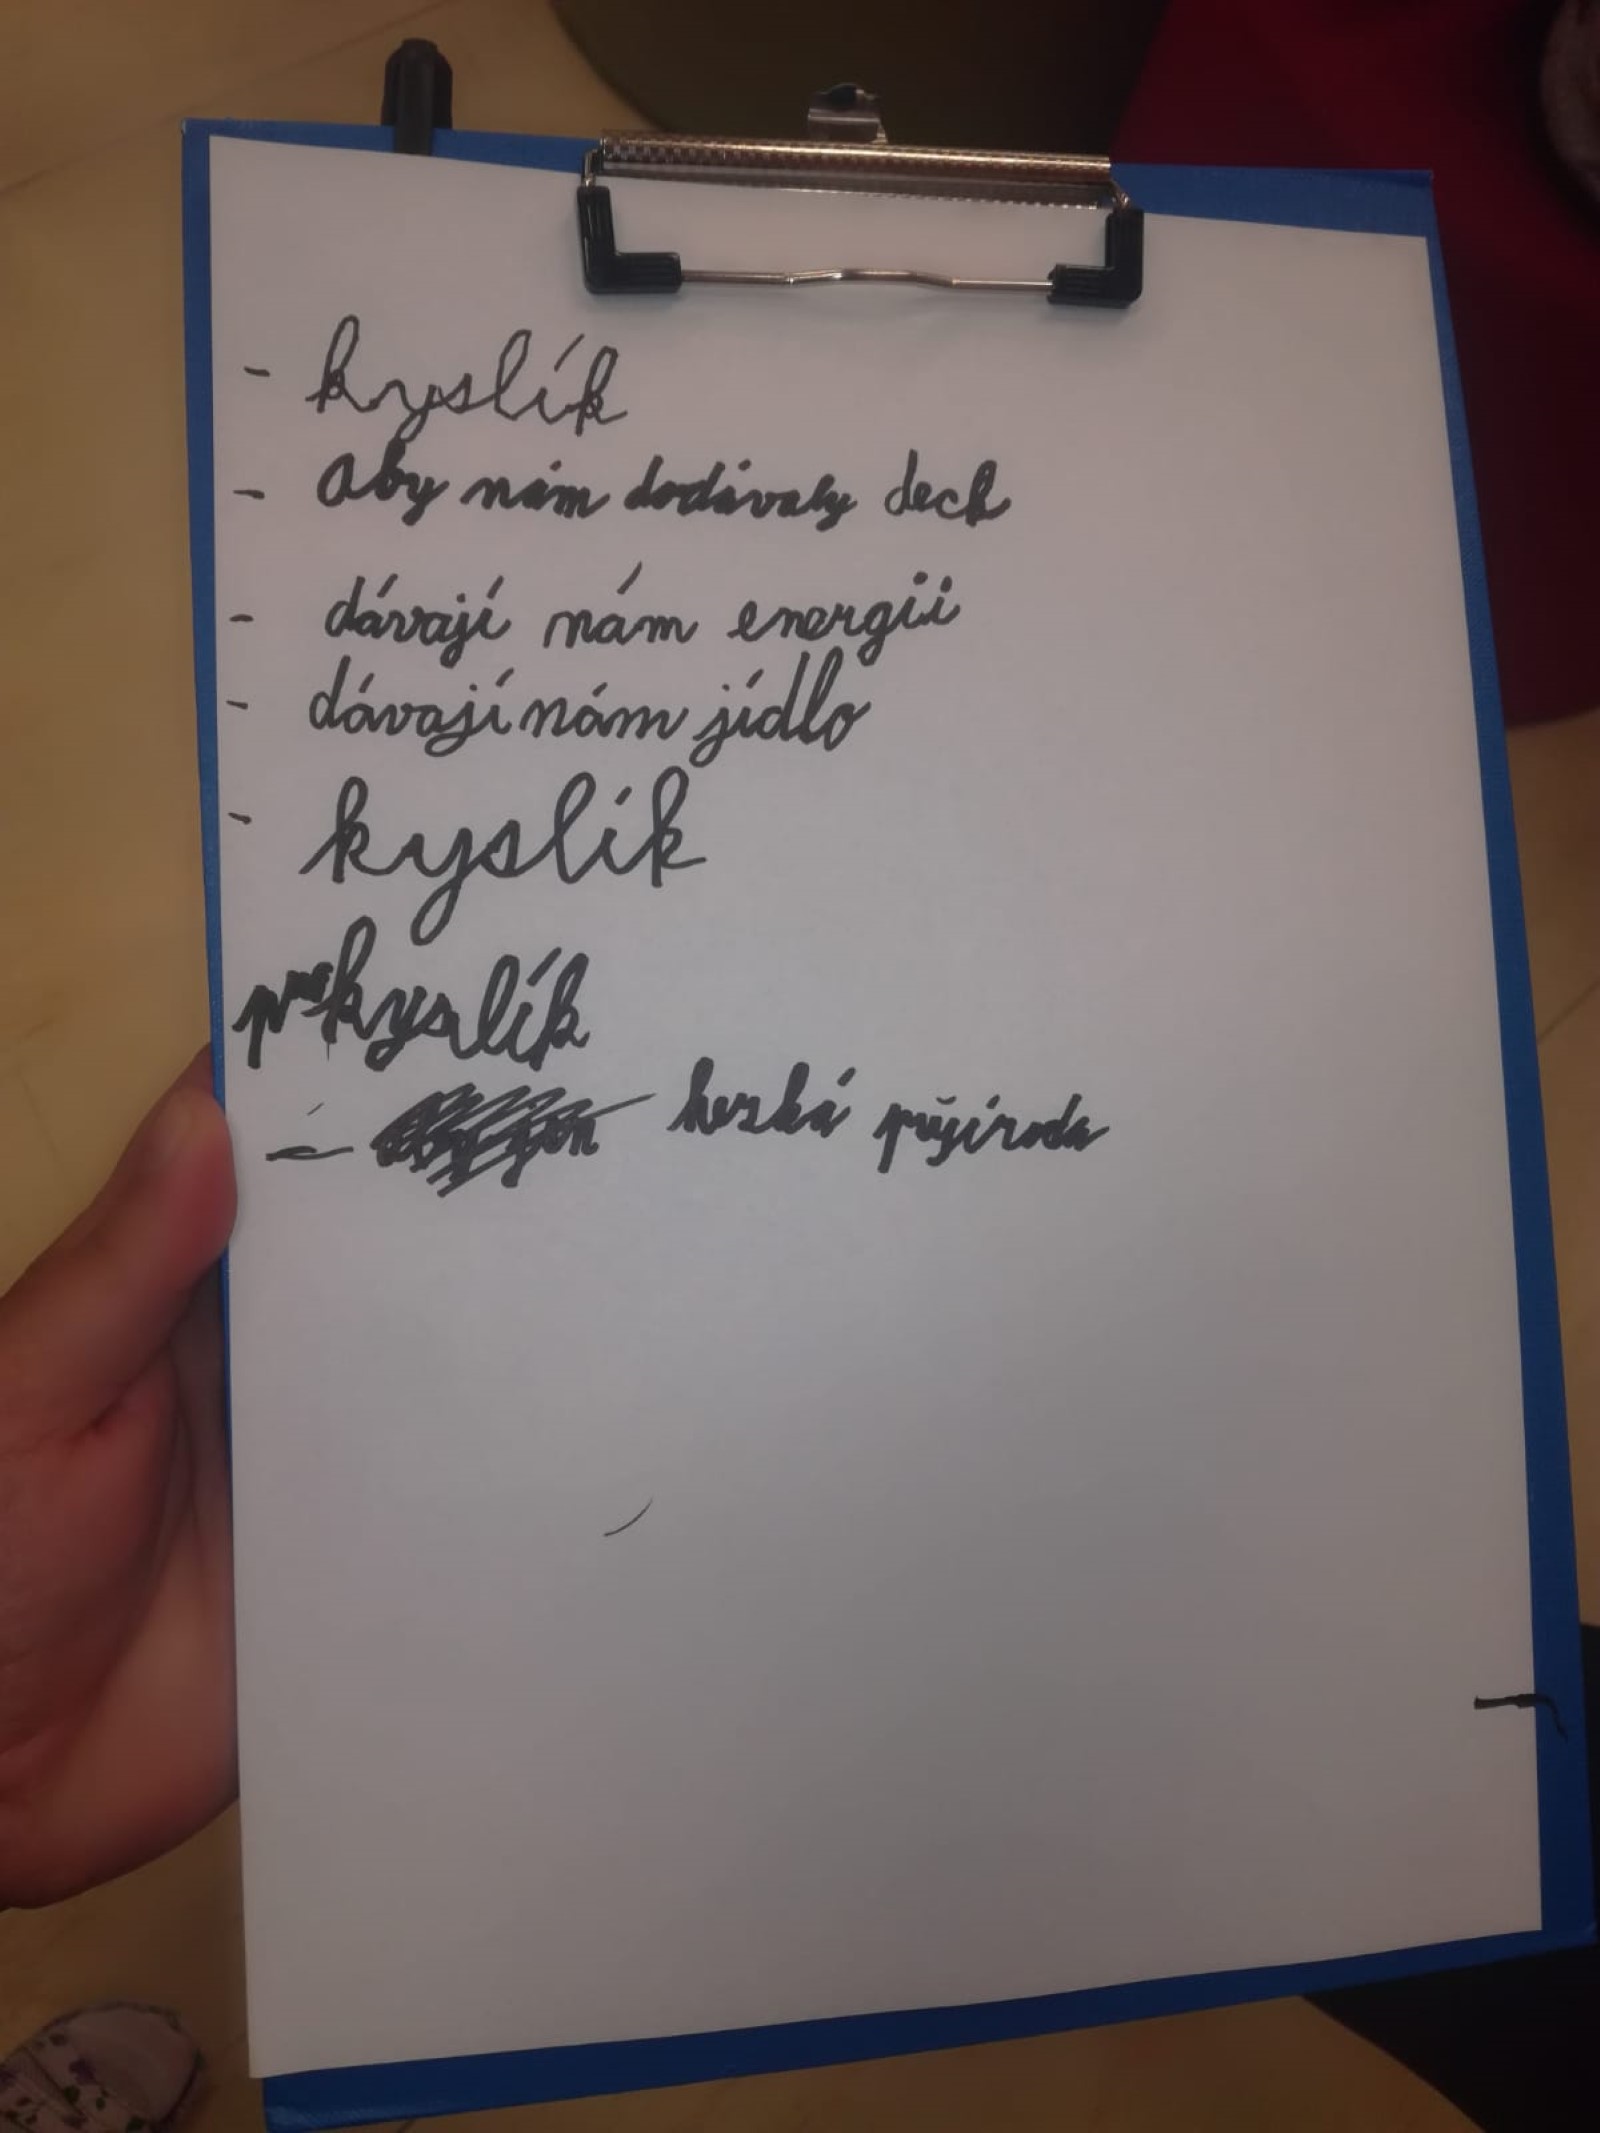 - kyslík
- aby nám dodávaly dech
- dávají nám energii
- dávají nám jídlo
- kyslík
pro kyslík
- hezká přijíroda